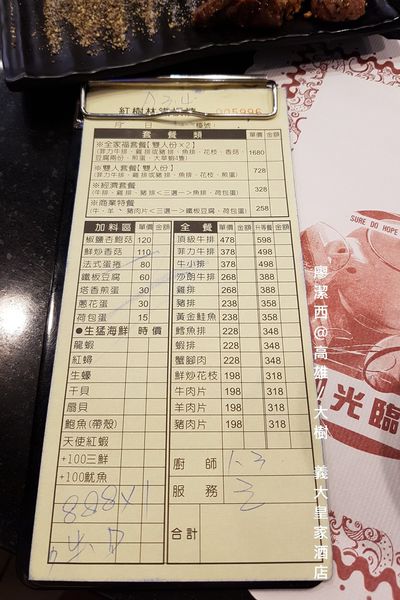 紅樹林
005996
套餐類 單價 金額
※全家福套餐【雙人份×2】
(菲力牛排、雞排或豬排、魚排、花枝、香菇、豆腐兩份、煎蛋、大草蝦4隻) 1680
※雙人套餐【雙人份】
(牛排、雞排或豬排、魚排、花枝、煎蛋) 728
※經濟套餐
(牛排、雞排、豬排<三選一>魚排、荷包蛋) 328
※商業特餐
(牛、羊、豬肉片<三選一>鐵板豆腐、荷包蛋) 258
加料區 單價 金額
椒鹽杏鮑菇 120
鮮炒香菇 110
法式蛋捲 80
鐵板豆腐 60
塔香煎蛋 30
蔥花蛋 30
荷包蛋 15
●生猛海鮮 時價
龍蝦
紅蟳
生蠔
干貝
扇貝
鮑魚(帶殼)
天使紅蝦
+100三鮮
+100魷魚
全餐 單價 金額 升等餐 金額
頂級牛排 478 598
菲力牛排 378 498
牛小排 378 498
沙朗牛排 268 388
雞排 238 358
豬排 238 358
黃金鮭魚 238 358
鱈魚排 228 348
蝦排 228 348
蟹腳肉 228 348
鮮炒花枝 198 318
牛肉片 198 318
羊肉片 198 318
豬肉片 198 318
廚師
服務
合計
SURE DO HOPE
光臨
廖潔西@高雄 大樹 義大皇家酒店